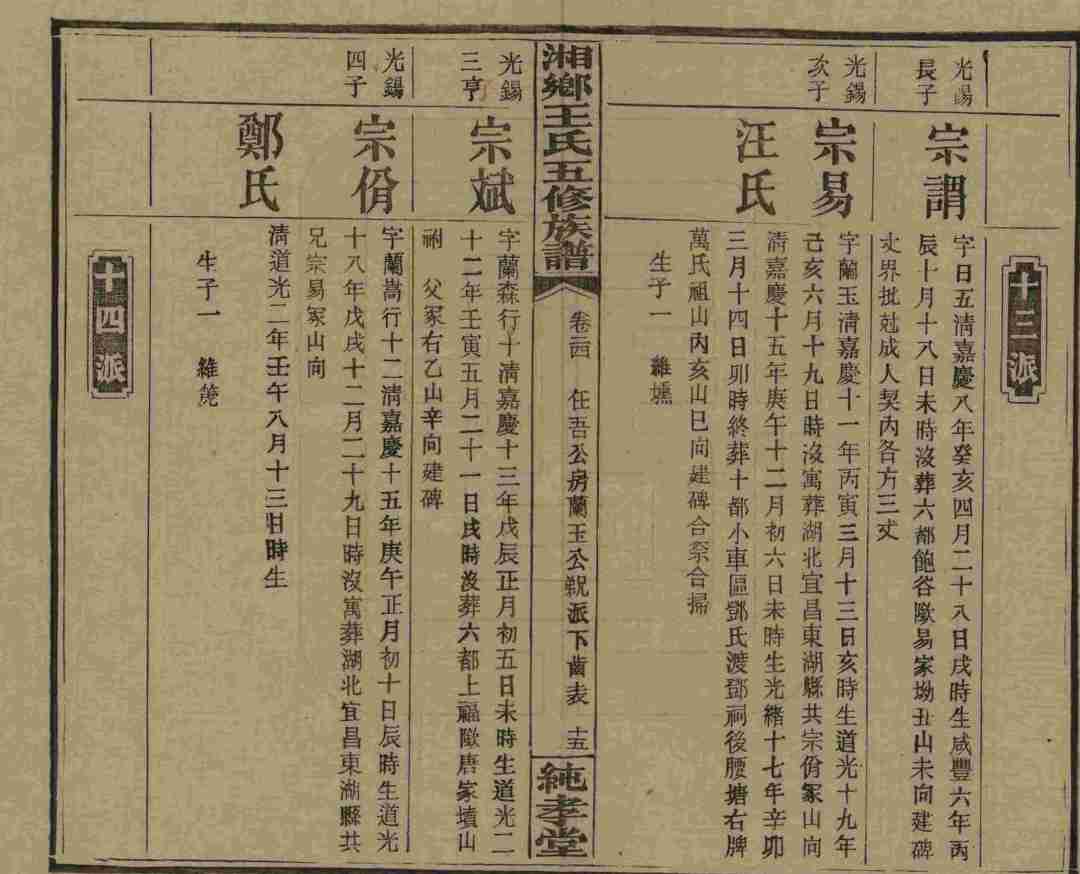 十三派
光錫
長子
宗謂
字日五清嘉慶八年癸亥四月二十八日戌時生咸豐六年丙
辰十月十八日未時沒葬六都飽谷歐易家坳丑山未向建碑
丈界批尅成人契內各方三丈
光錫
次子
宗易
字蘭玉清嘉慶十一年丙寅三月十三日亥時生道光十九年
己亥六月十九日時沒寓葬湖北宜昌東湖縣共宗佾冢山向
汪氏
清嘉慶十五年庚午十二月初六日未時生光緒十七年辛卯
三月十四日卯時終葬十都小車區鄧氏渡鄧祠後腰塘右牌
萬氏祖山丙亥山巳向建碑合禁合掃
生子一 維
湘鄉王氏五修族譜
卷 任吾公房蘭玉公 派下齒表 十五
純孝堂
光錫
三亨
宗斌
字蘭森行十清嘉慶十三年戊辰正月初五日未時生道光二
十二年壬寅五月二十一日戌時沒葬六都上福歐唐家墳山
祔 父冢右乙山辛向建碑
光錫
四子
宗佾
字蘭嵩行十二清嘉慶十五年庚午正月初十日辰時生道光
十八年戊戌十二月二十九日時沒寓葬湖北宜昌東湖縣共
兄宗易冢山向
鄭氏
清道光二年壬午八月十三日時生
生子一 維
十四派